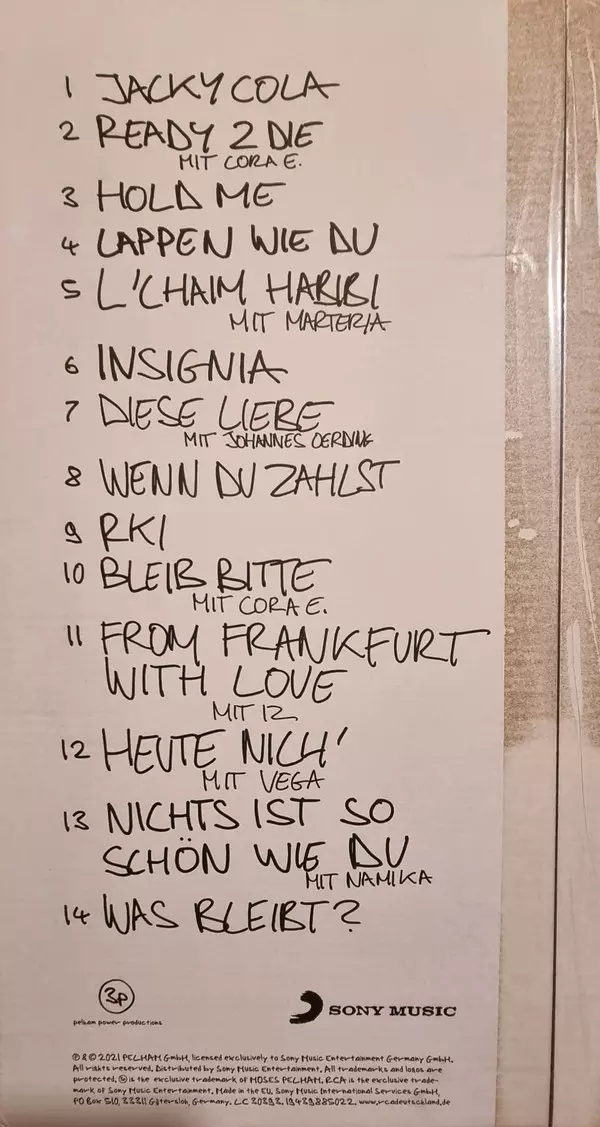 1 JACKY COLA
2 READY 2 DIE
MIT CORA E.
3 HOLD ME
4 LAPPEN WIE DU
5 L'CHAIM HABIBI
MIT MARTERIA
6 INSIGNIA
7 DIESE LIEBE
MIT JOHANNES OERDING
8 WENN DU ZAHLST
9 RKI
10 BLEIB BITTE
MIT CORA E.
11 FROM FRANKFURT
WITH LOVE
MIT IZ
12 HEUTE NICH'
MIT VEGA
13 NICHTS IST SO
SCHÖN WIE DU
MIT NAMIKA
14 WAS BLEIBT?
3p
pelham power productions
SONY MUSIC
℗ & © 2021 PELHAM GmbH, licensed exclusively to Sony Music Entertainment Germany GmbH.
All rights reserved. Distributed by Sony Music Entertainment. All trademarks and logos are
protected. 3p is the exclusive trademark of MOSES PELHAM. RCA is the exclusive trade-
mark of Sony Music Entertainment. Made in the EU. Sony Music International Services GmbH,
PO Box 510, 33311 Gütersloh, Germany. LC 20393. 19439885022. www.rcadeutschland.de